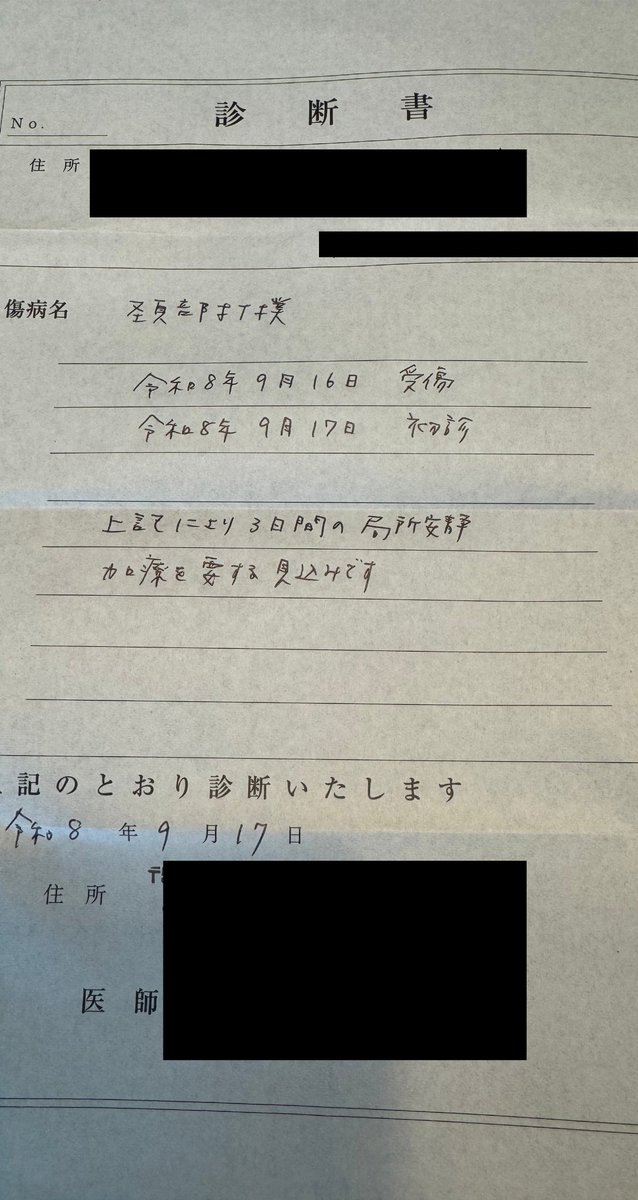 診断書
No.
住所
傷病名 頚部打撲
令和8年9月16日 受傷
令和8年9月17日 初診
上記により3日間の局所安静
加療を要する見込みです
記のとおり診断いたします
令和8年9月17日
住所
医師